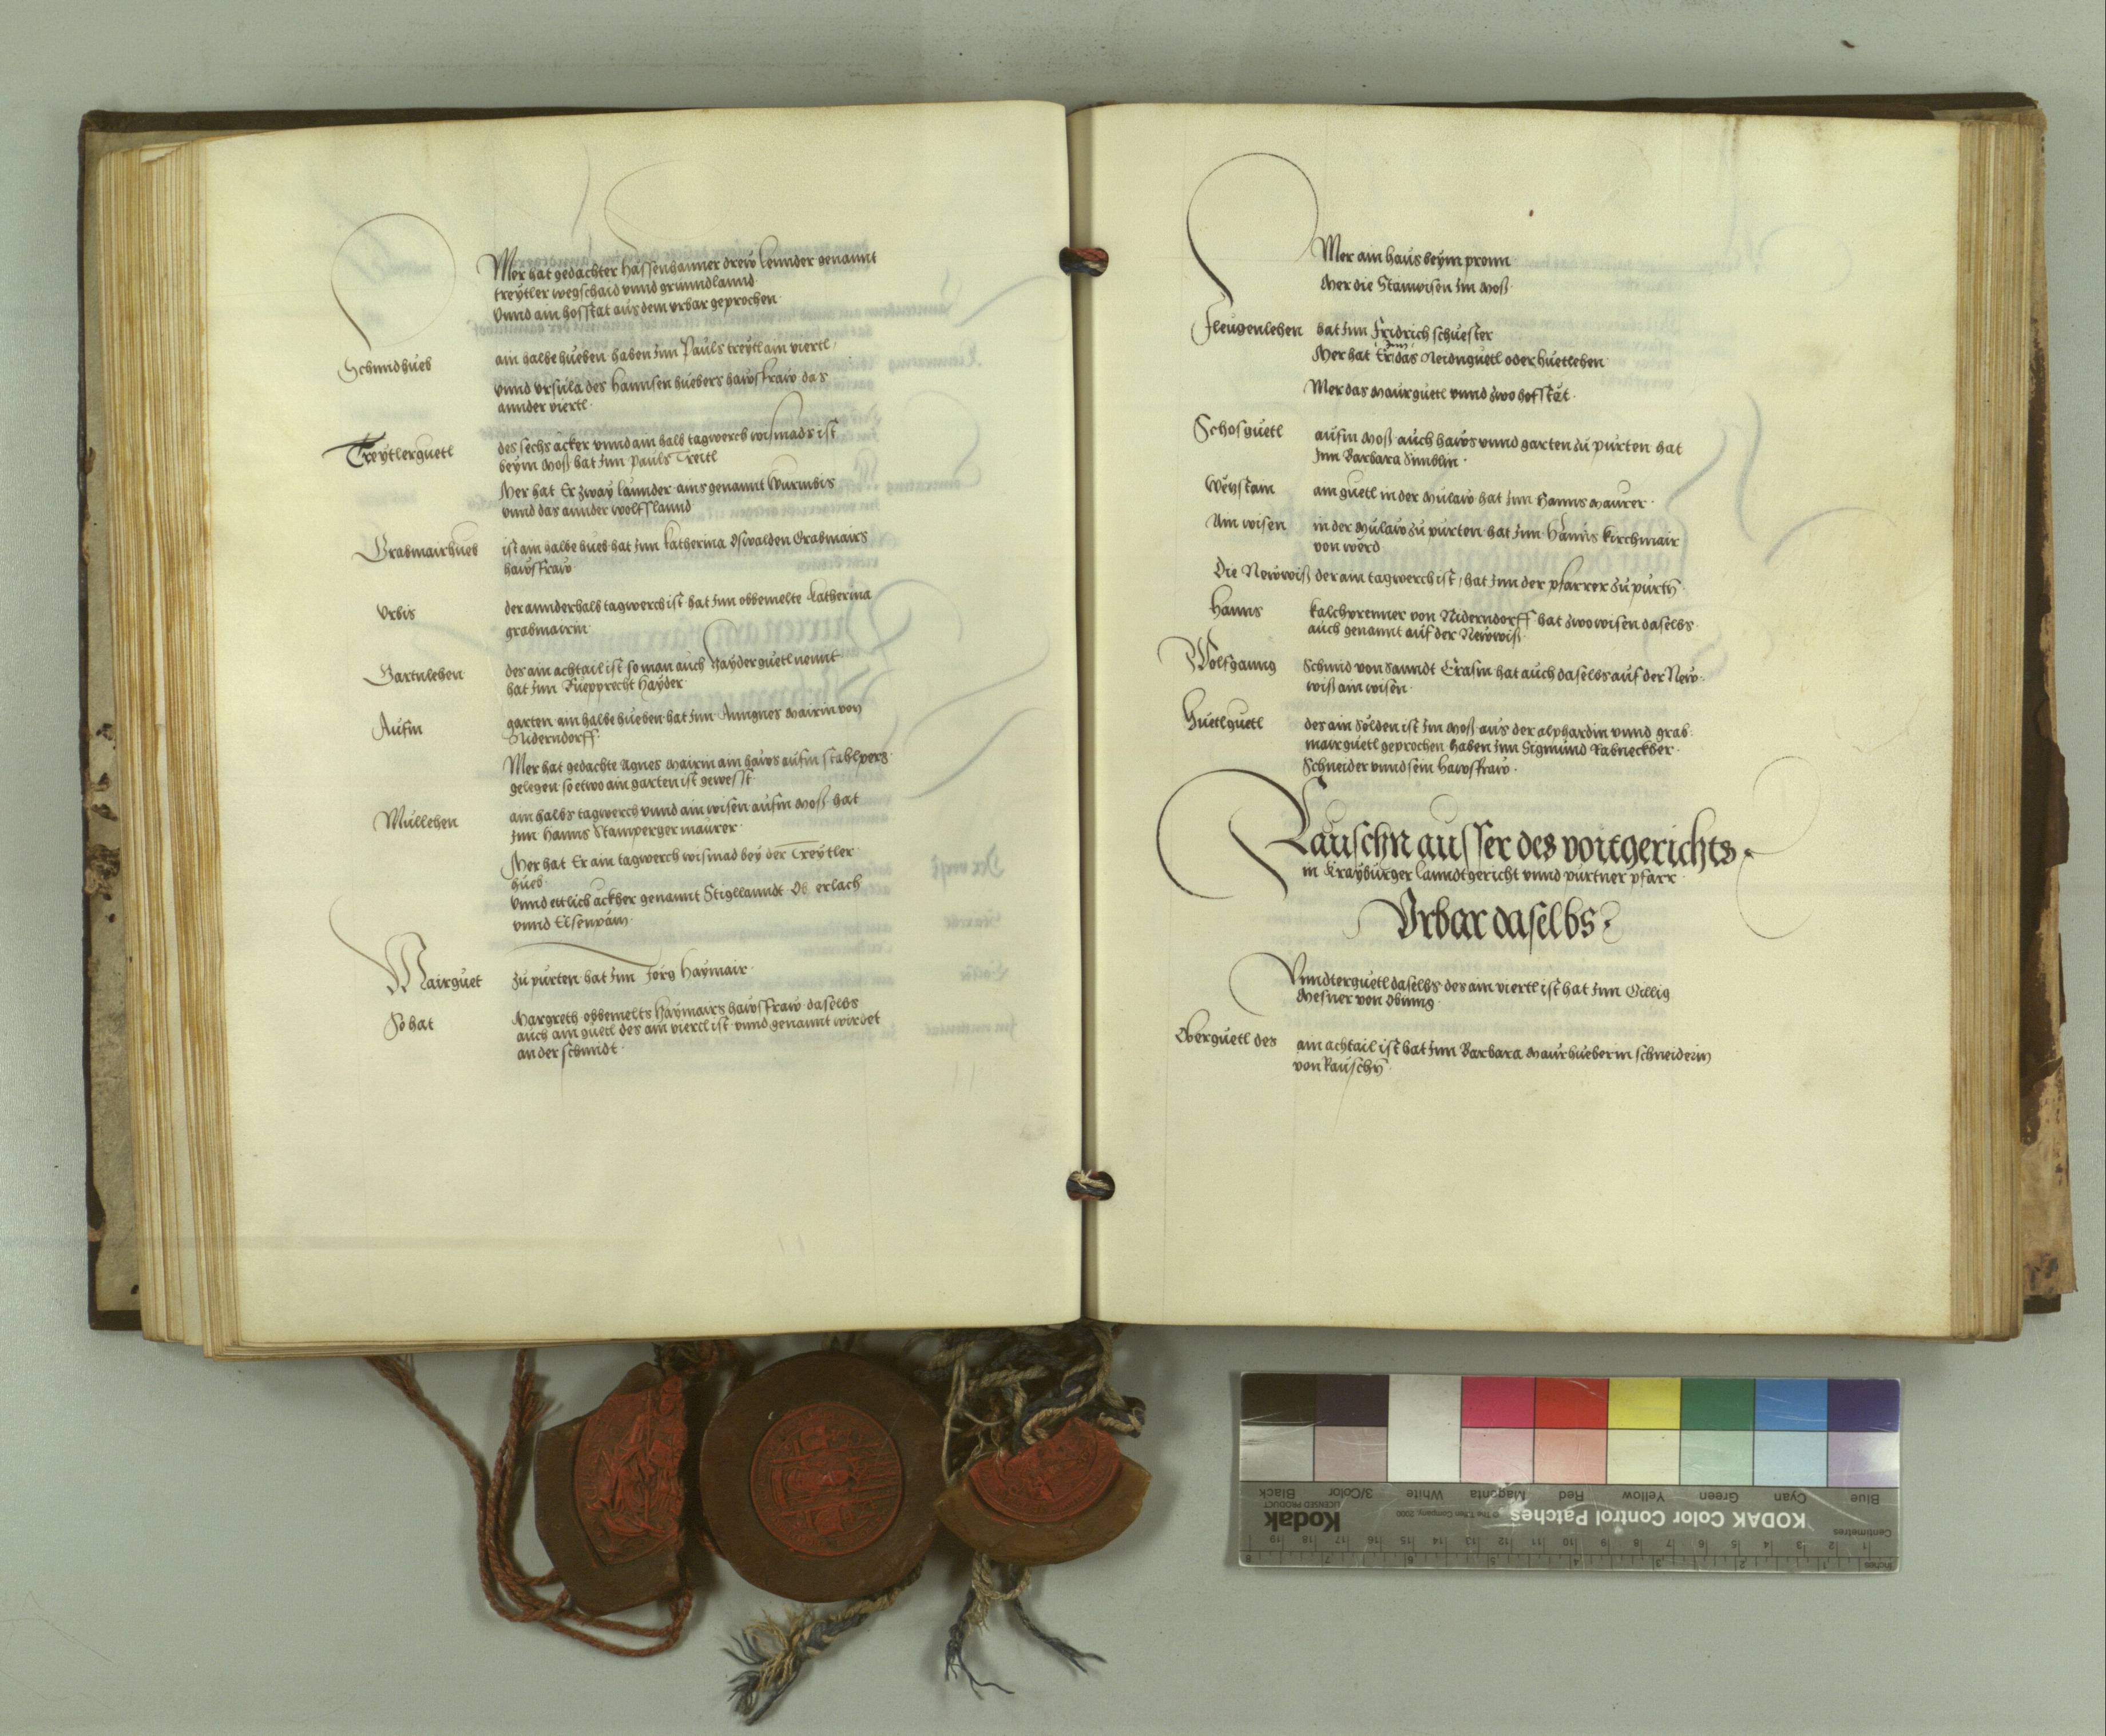 Mer hat gedachter Hassenhamer drew lennder genannt
treytler wegschaid vnnd grundlannd
vnnd ain hofstat aus dem vrbar geprochen
Schmidhueb ain halbe hueben haben Inn Pauls treytl ain viertl
vnnd vrsula des Hannsen huebers hawsfraw das
annder viertl
Treytlerguetl des sechs äcker vnnd ain halb tagwerch wismads ist
beym Moß hat Inn Pauls Treitl
Mer hat Er zway lannder ains genannt Wurmbis
vnnd das annder wolfslannd
Grabmairhueb ist ain halbe hueb hat Inn Katherina Oswalden Grabmairs
hawsfraw
Vrbis der annderhalb tagwerch ist hat Inn obbemelte Katherina
grabmairin
Gartnlehen des ain achtail ist so man auch Hayderguetl nennt
hat Inn Ruepprecht Hayder
Aufm garten ain halbe hueben hat Inn Anngnes Mairin von
Niderndorff
Mer hat gedachte Agnes Mairin ain haws aufm stahlperg
gelegen so etwo ain garten ist gewesst
Müllehen ain halbs tagwerch vnnd ain wisen aufm Moß hat
Inn Hanns Stamperger maurer
Mer hat Er ain tagwerch wismad bey der Treytler
hueb
vnnd ettlich äckher genannt Stigllanndt Ob erlach
vnnd Eisenpäm
Mairguet zu purten hat Inn Jörg Haymair
So hat Margreth obbemelts Haymairs hawsfraw daselbs
auch ain guetl des ain viertl ist vnnd genannt wirdet
an der schmidt
Mer ain haus beym pronn
Mer die Stainwisen Im Moß
Fleugenlehen hat Inn Fridrich schuester
Inn
Mer hat Er das Neidnguetl oder huetlehen
Mer das Maurguetl vnnd zwo hofstet
Schosguetl aufm Moß auch haws vnnd garten zu purten hat
Inn Barbara Zimblin
Weystain ain guetl in der Mülaw hat Inn Hanns Maurer
Am wisen in der Mülaw zu purten hat Inn Hanns Kirchmair
von werd
Die Newwiß der ain tagwerch ist, hat Inn der pfarrer zu purtn
Hanns Kalchprenner von Niderndorff hat zwo wisen daselbs
auch genannt auf der Newwiß
Wolfganng Schmid von Sanndt Erasm hat auch daselbs auf der New
wiß ain wisen
Huetlguetl des ain Sölden ist Im Moß aus der alphardin vnnd grab
mairguetl geprochen haben Inn Sigmund Rabneckher
Schneider vnnd sein hawsfraw
Rauschn ausser des voitgerichts
in Krayburger lanndtgericht vnnd purtner pfarr
Vrbar daselbs
Vnndterguetl daselbs des ain viertl ist hat Inn Gillig
Mesner von Obing
Oberguetl des ain achtail ist hat Inn Barbara Maurhueberin schneiderin
von Rauschn
Blue Cyan Green Yellow Red Magenta White 3/Color Black
KODAK Color Control Patches
© The Tiffen Company, 2000
Kodak
LICENSED PRODUCT
Centimetres
1 2 3 4 5 6 7 8 9 10 11 12 13 14 15 16 17 18 19
Inches
1 2 3 4 5 6 7 8